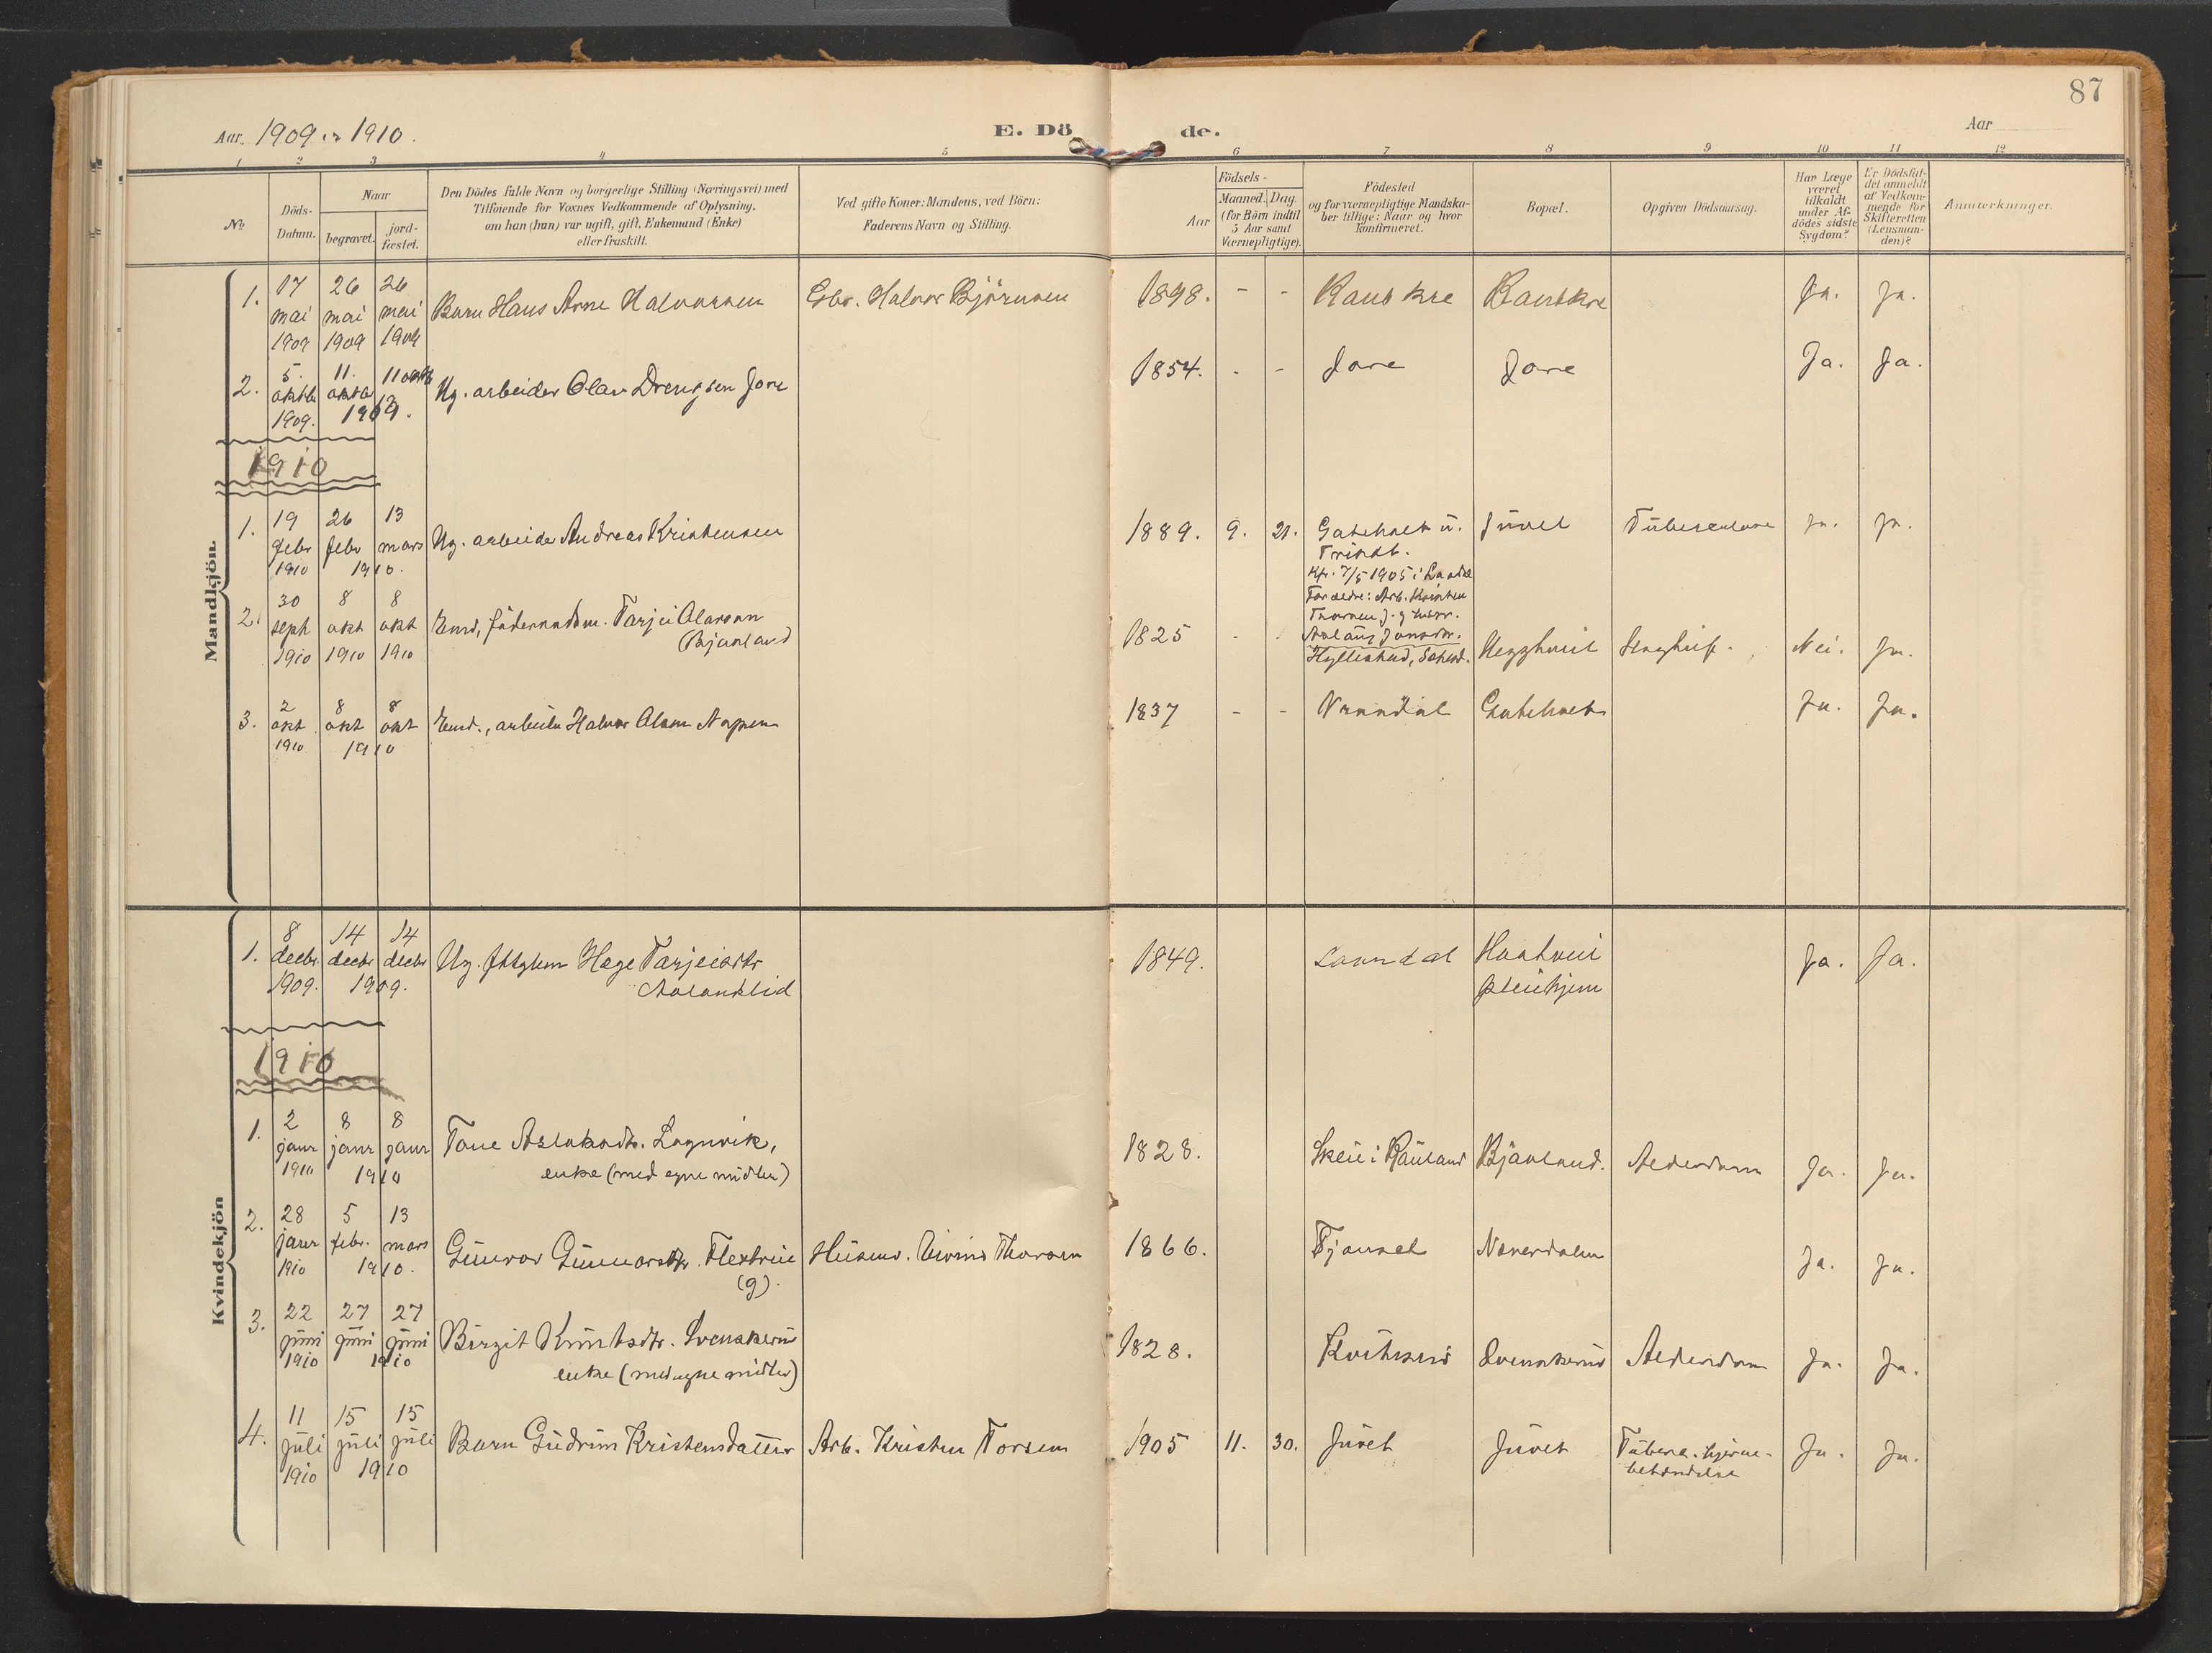 87
Aar 1909 og 1910.
E. Döde.
Aar
1 2 3 4 5 6 7 8 9 10 11 12
No.
Döds-Datum.
Naar
begravet.
jord-fæstet.
Den Dödes fulde Navn og borgerlige Stilling (Næringsvei) med
Tilföiende for Voxnes Vedkommende af Oplysning,
om han (hun) var ugift, gift, Enkemand (Enke)
eller fraskilt.
Ved gifte Koner: Mandens, ved Börn:
Faderens Navn og Stilling.
Födsels-
Aar
Maaned. Dag.
(for Börn indtil
5 Aar samt
Værnepligtige).
Födested
og for værnepligtige Mandska-
ber tillige: Naar og hvor
konfirmeret.
Bopæl.
Opgiven Dödsaarsag.
Har Læge
været
tilkaldt
under Af-
dödes sidste
Sygdom?
Er Dödsfal-
det anmeldt
af Vedkom-
mende for
Skifteretten
(Lensman-
den)?
Anmærkninger.
Mandkjön.
1. 17 mai 1909 26 mai 1909 26 mai 1909 Barn Hans Arne Halvorsen Gbr. Halvor Björnsen 1898. - - Ja. Ja.
2. 5. oktb 1909. 11. oktb 11 oktb 1909. Ug. arbeider Olav Drengsen Jore 1854. - - Jore Jore Ja. Ja.
1910
1. 19 febr 1910 26 febr 13 mars 1910. Ug. arbeider Andreas Kristensen 1889. 9. 21. Gateholt u.
Kfr. 7/5 1905 i
Forældre: Arb. Kristen
Juvet Tuberculose Ja. Ja.
2. 30 septb 1910 8 okt 1910 8 okt 1910 Emd, Tarjei Olavson
(Bjaaland)
1825 - - Nei. Ja.
3. 2 okt 1910 8 okt 8 okt 1910 Emd., arbeider Halvor Olsen 1837 - - Vraadal Gateholt Ja. Ja.
Kvindekjön
1. 8 decbr. 1909. 14 decbr 14 decbr 1909. Ug. Hæge Tarjeisdtr
Aslandslid
1849. Laurdal
pleiehjem
Ja. Ja.
1910
1. 2 janr 1910 8 janr 8 janr 1910 Tone Aslaksdtr. Lognvik,
enke (med egne midler)
1828. Skeie i Rauland Bjaaland. Alderdom Ja. Ja.
2. 28 janr 1910 5 febr. 13 mars 1910. Gunvor Gunnarsdtr. Flextveit
(g).
Husmd. Eivind Thorsen 1866. Nordalen Ja. Ja.
3. 22 juni 1910 27 juni 27 juni 1910 Birgit Knutsdtr. Svenskerud
enke (med egne midler)
1828. Svenskerud Alderdom Ja. Ja.
4. 11 juli 1910 15 juli 15 juli 1910 Barn Gudrun Kristensdatter Arb. Kristen Torsen 1905 11. 30. Juvet Juvet Ja. Ja.